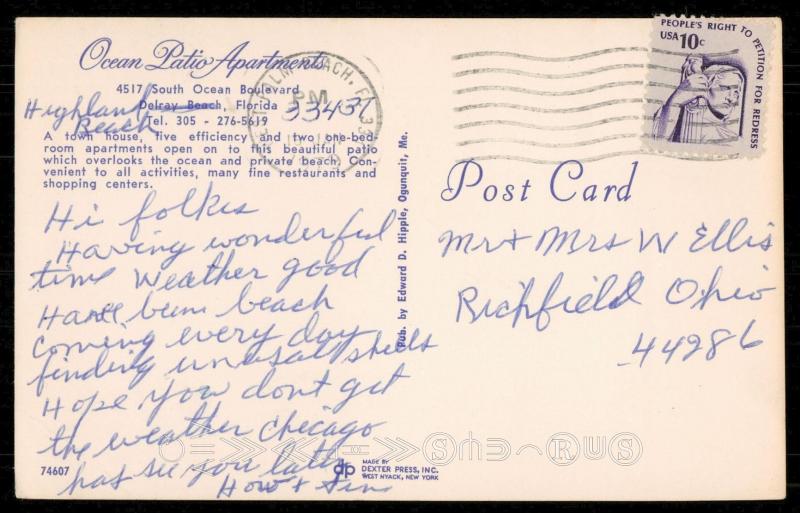 Ocean Patio Apartments
4517 South Ocean Boulevard
Delray Beach, Florida 33431
Highland
Beach
Tel. 305 - 276-5619
A town house, five efficiency and two one-bed-
room apartments open on to this beautiful patio
which overlooks the ocean and private beach. Con-
venient to all activities, many fine restaurants and
shopping centers.
Hi folkes
Having wonderful
time weather good
Have bum beach
coming every day
finding unusal shells
Hope you dont get
the weather chicago
has see you later
How +
74607
Pub. by Edward D. Hipple, Ogunquit, Me.
dp
MADE BY
DEXTER PRESS, INC.
WEST NYACK, NEW YORK
PEOPLE'S RIGHT TO PETITION FOR REDRESS
USA 10c
BEACH, FL
PM
Post Card
Mr + Mrs W Ellis
Richfield Ohio
44286
RUS